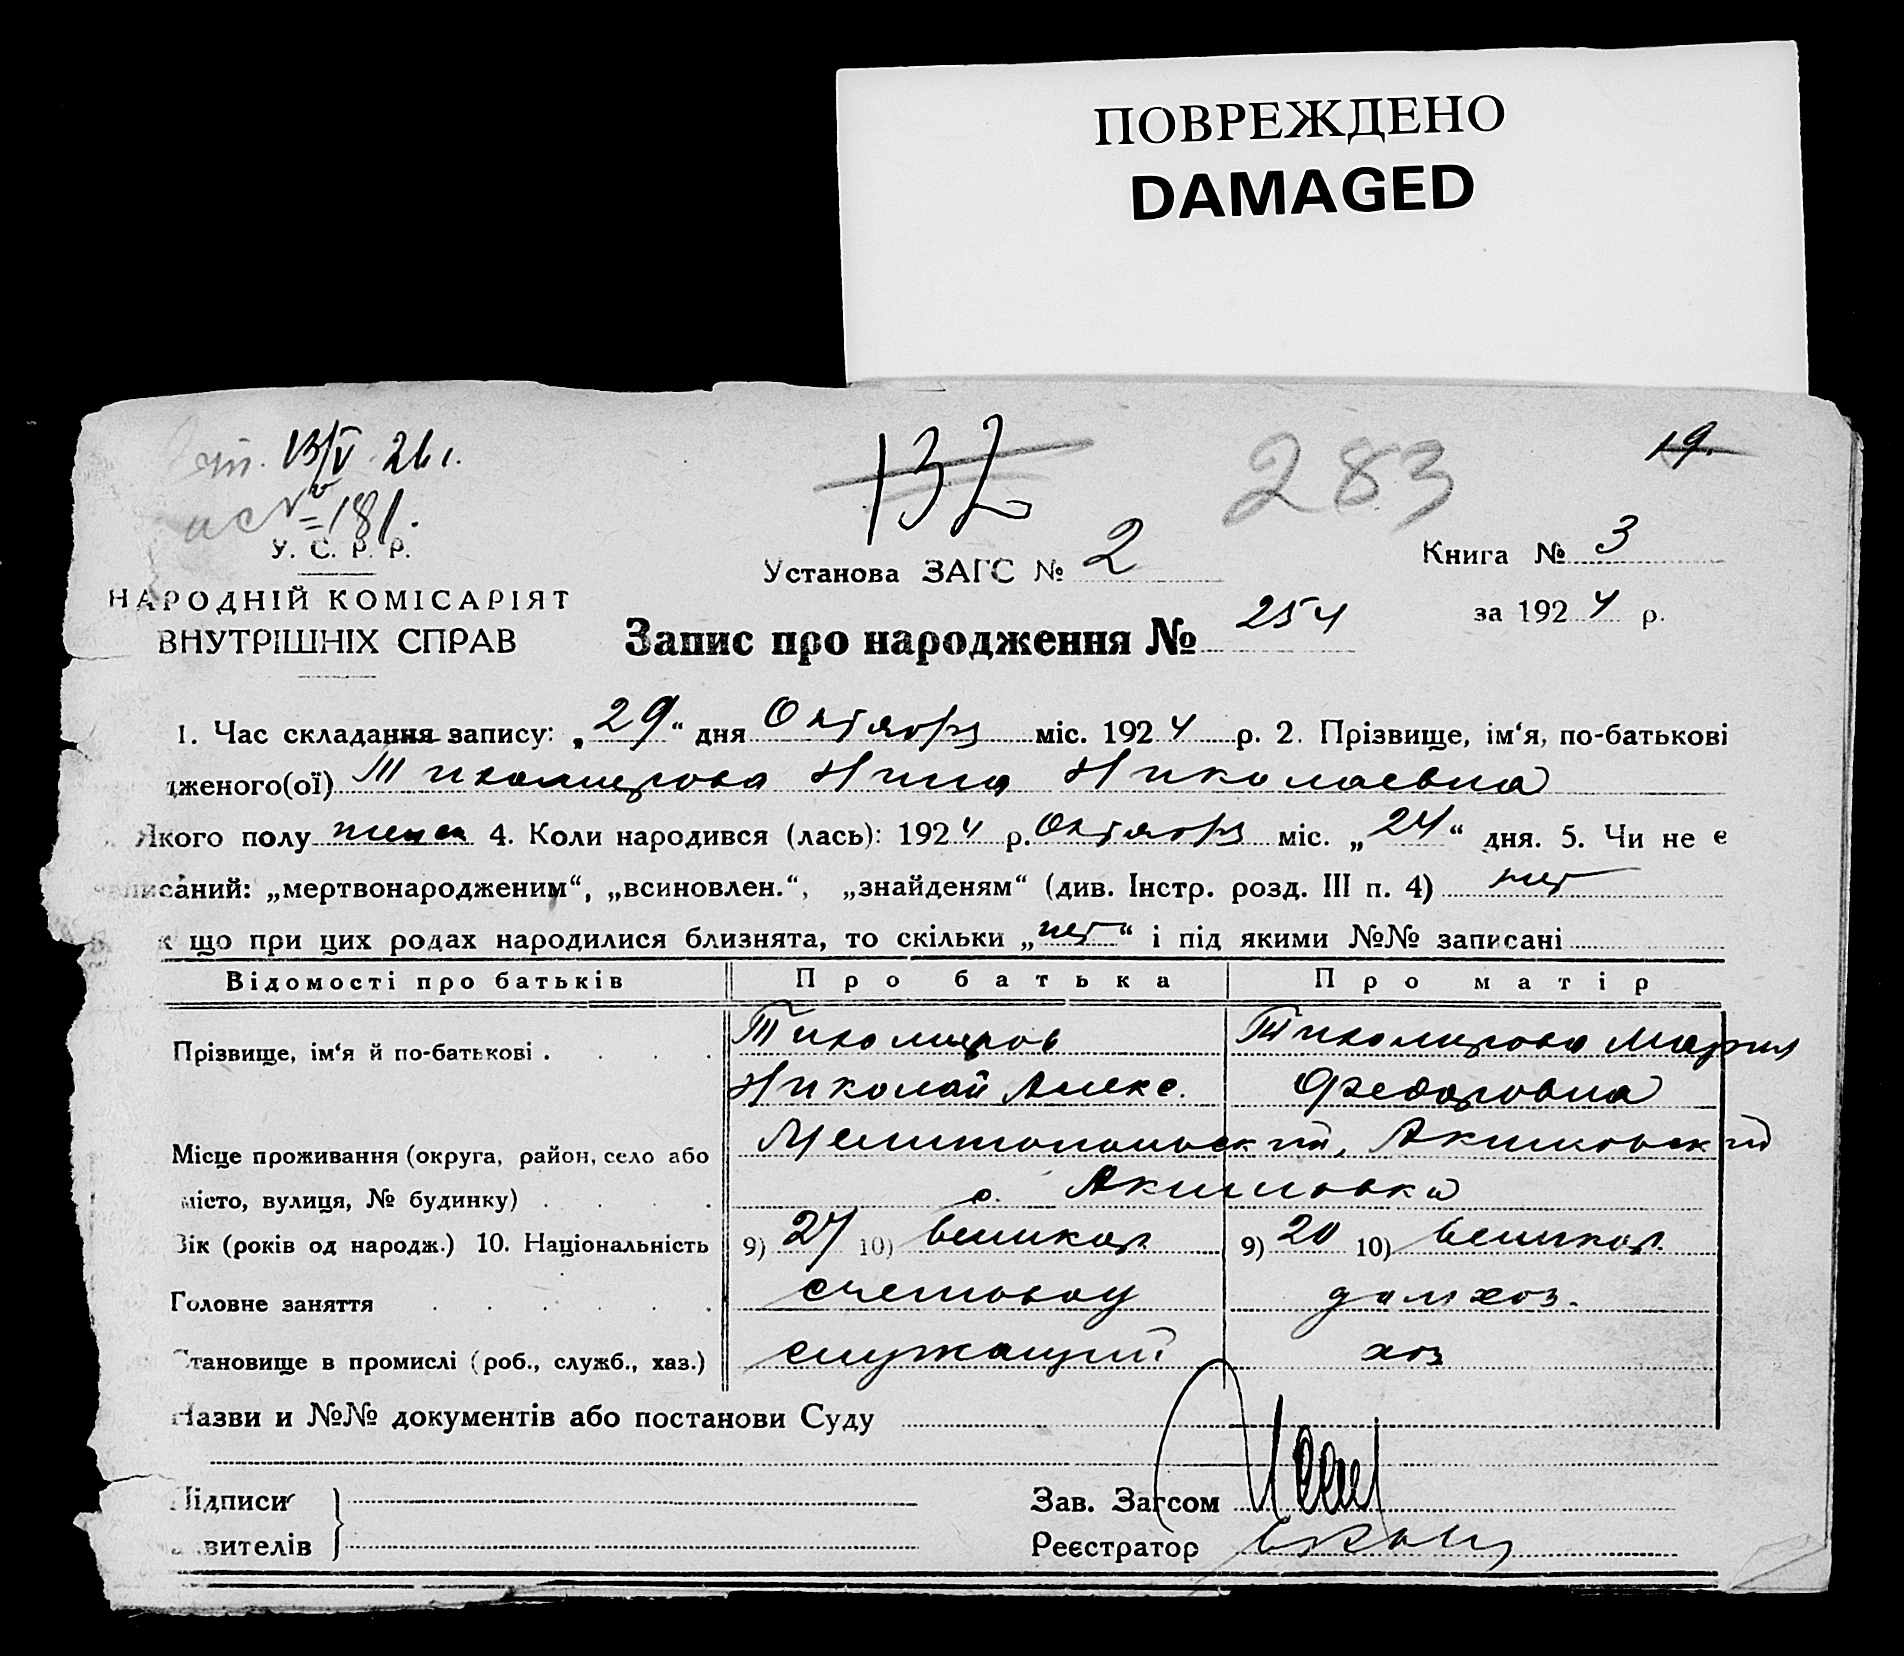 ПОВРЕЖДЕНО
DAMAGED
13/V 26 г.
№ 181.
132
283
19.
У. С. Р. Р.
НАРОДНІЙ КОМІСАРІЯТ
ВНУТРІШНІХ СПРАВ
Установа ЗАГС № 2
Книга № 3
за 1924 р.
Запис про народження № 254
1. Час складання запису: „29“ дня Октября міс. 1924 р. 2. Прізвище, ім‘я, по-батькові
дженого(ої) Тихомирова Нина Николаевна
Якого полу женск 4. Коли народився (лась): 1924 р. Октября міс. „24“ дня. 5. Чи не є
писаний: „мертвонародженим“, „всиновлен.“, „знайденям“ (див. Інстр. розд. III п. 4) нет
к що при цих родах народилися близнята, то скільки „нет“ і під якими №№ записані
Відомості про батьків Про батька Про матір
Прізвище, ім‘я й по-батькові . . . . Тихомиров Тихомирова Мария
Николай Алекс. Федоровна
Місце проживання (округа, район, село або Мелитопольский, Акимовский
місто, вулиця, № будинку) . . . . с. Акимовка
Вік (років од народж.) 10. Національність 9) 27 10) великор. 9) 20 10) великор.
Головне заняття . . . . . . счетовод домхоз.
Становище в промислі (роб., служб., хаз.) служащий хоз
Назви и №№ документів або постанови Суду
Підписи
явителів
Зав. Загсом
Реєстратор